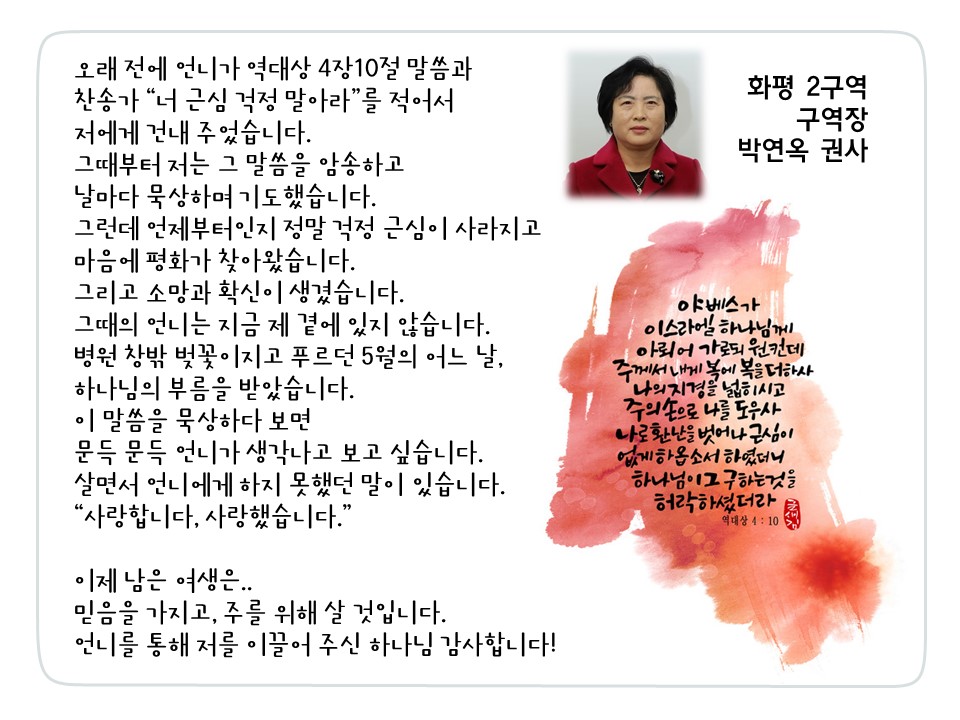 오래 전에 언니가 역대상 4장10절 말씀과
찬송가 “너 근심 걱정 말아라”를 적어서
저에게 건내 주었습니다.
그때부터 저는 그 말씀을 암송하고
날마다 묵상하며 기도했습니다.
그런데 언제부터인지 정말 걱정 근심이 사라지고
마음에 평화가 찾아왔습니다.
그리고 소망과 확신이 생겼습니다.
그때의 언니는 지금 제 곁에 있지 않습니다.
병원 창밖 벚꽃이지고 푸르던 5월의 어느 날,
하나님의 부름을 받았습니다.
이 말씀을 묵상하다 보면
문득 문득 언니가 생각나고 보고 싶습니다.
살면서 언니에게 하지 못했던 말이 있습니다.
“사랑합니다, 사랑했습니다.”
이제 남은 여생은..
믿음을 가지고, 주를 위해 살 것입니다.
언니를 통해 저를 이끌어 주신 하나님 감사합니다!
화평 2구역
구역장
박연옥 권사
야베스가
이스라엘 하나님께
아뢰어 가로되 원컨대
주께서 내게 복에 복을 더하사
나의 지경을 넓히시고
주의 손으로 나를 도우사
나로 환난을 벗어나 근심이
없게 하옵소서 하였더니
하나님이 그 구하는 것을
허락하셨더라
역대상 4 : 10